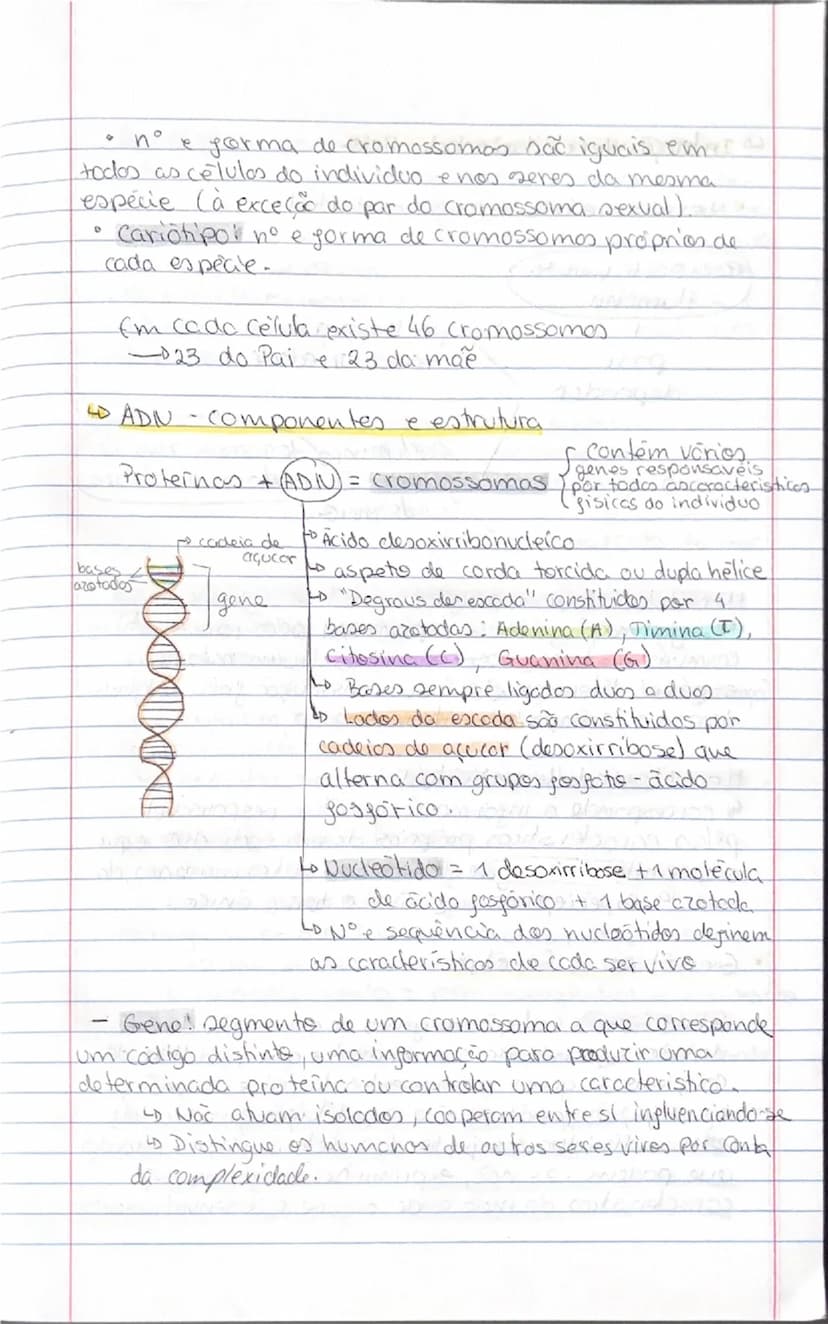 • nº e forma de cromossomas são iguais em
todas as células do individuo e nos seres da mesma
espécie (à exceção do par do cromossoma sexual).
• Cariótipo: nº e forma de cromossomas próprios de
cada espécie.
Em cada célula existe 46 cromossomas
→ 23 do Pai e 23 da mãe
↳ ADN - componentes e estrutura
Proteínas + ADN = cromossomas { Contém vários
genes responsavéis
por todas as caracteristicas
físicas do individuo
→ cadeia de
açucar
bases
azotadas
gene
↳ Ácido desoxirribonucleico
↳ aspeto de corda torcida ou dupla hélice
↳ "Degraus da escada" constituídos por 4
bases azotadas: Adenina (A), Timina (T),
Citosina (C), Guanina (G)
↳ Bases sempre ligadas duas a duas
↳ Lados da escada são constituidos por
cadeias de açucar (desoxirribose) que
alterna com grupos fosfato - ácido
fosfórico.
↳ Nucleótido = 1 desoxirribose + 1 molécula
de ácido fosfórico + 1 base azotada
↳ Nº e sequência dos nucleótidos definem
as características de cada ser vivo
- Gene: segmento de um cromossoma a que corresponde
um código distinto, uma informação para produzir uma
determinada proteína ou controlar uma caracteristica.
↳ Não atuam isolados, cooperam entre si influenciando-se
↳ Distingue os humanos de outros seres vivos por conta
da complexidade.